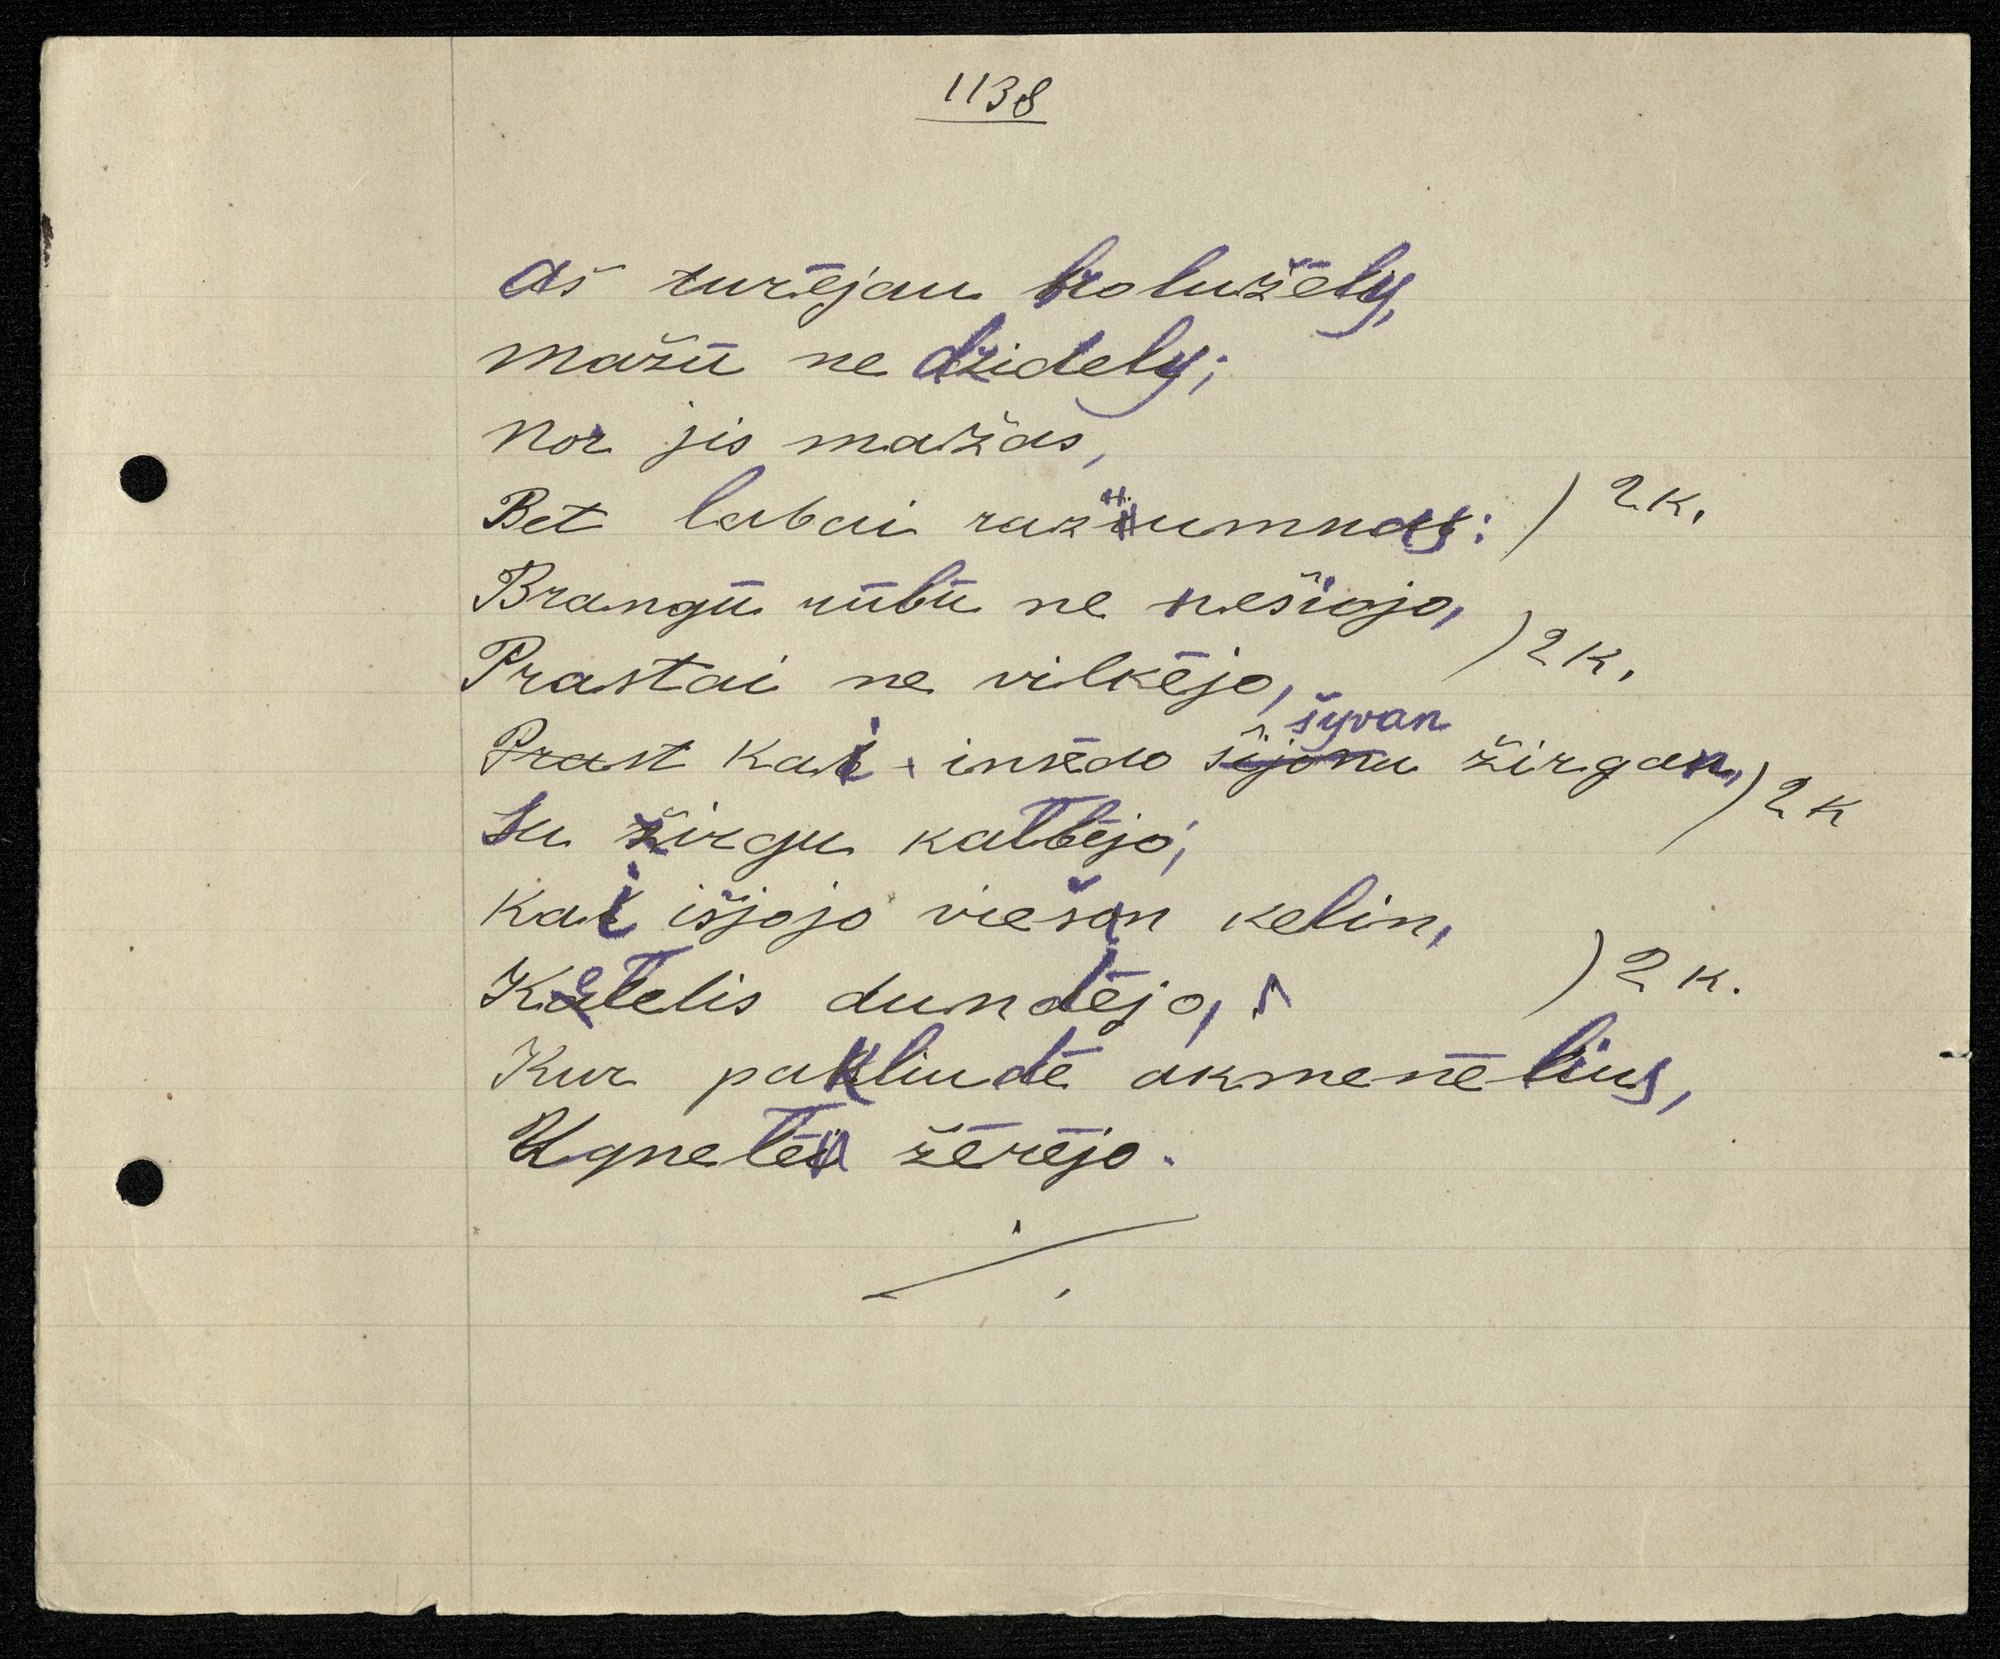 1138
Aš turējau brolužēly,
mažū ne dzidely;
nor jis mažas,
Bet labai razumnas: ) 2 k.
Brangū rūbū ne nešiojo,
Prastai ne vilkējo, ) 2 k.
šyvan
Prast Kai insēdo šijonu žirgan, ) 2 k
Su žirgu kalbējo;
Kai išjojo viešan kelin,
Kelelis dundējo, ) 2 k.
Kur pakliudē akmenēlius,
Ugnelē žērējo.